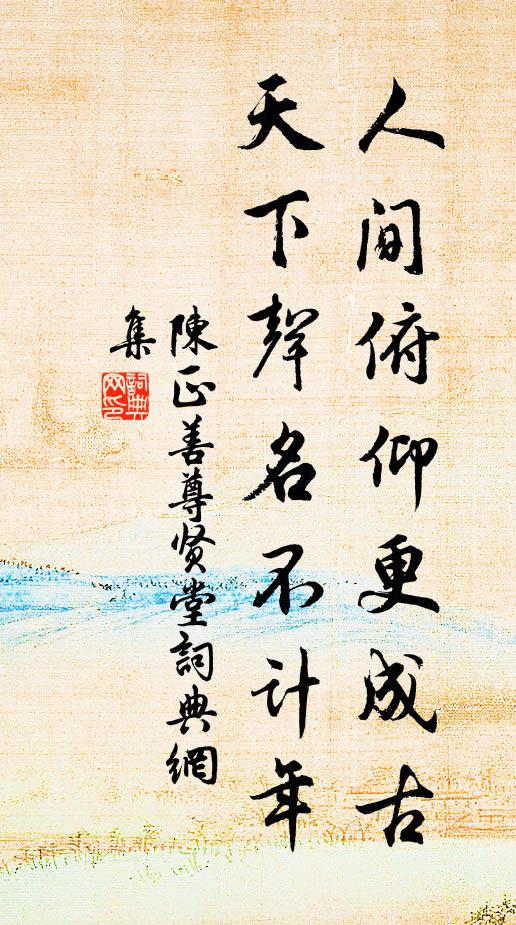 人间俯仰更成古
天下聲名不计年
陳正善尊贤堂詞典網
集
詞典
网印